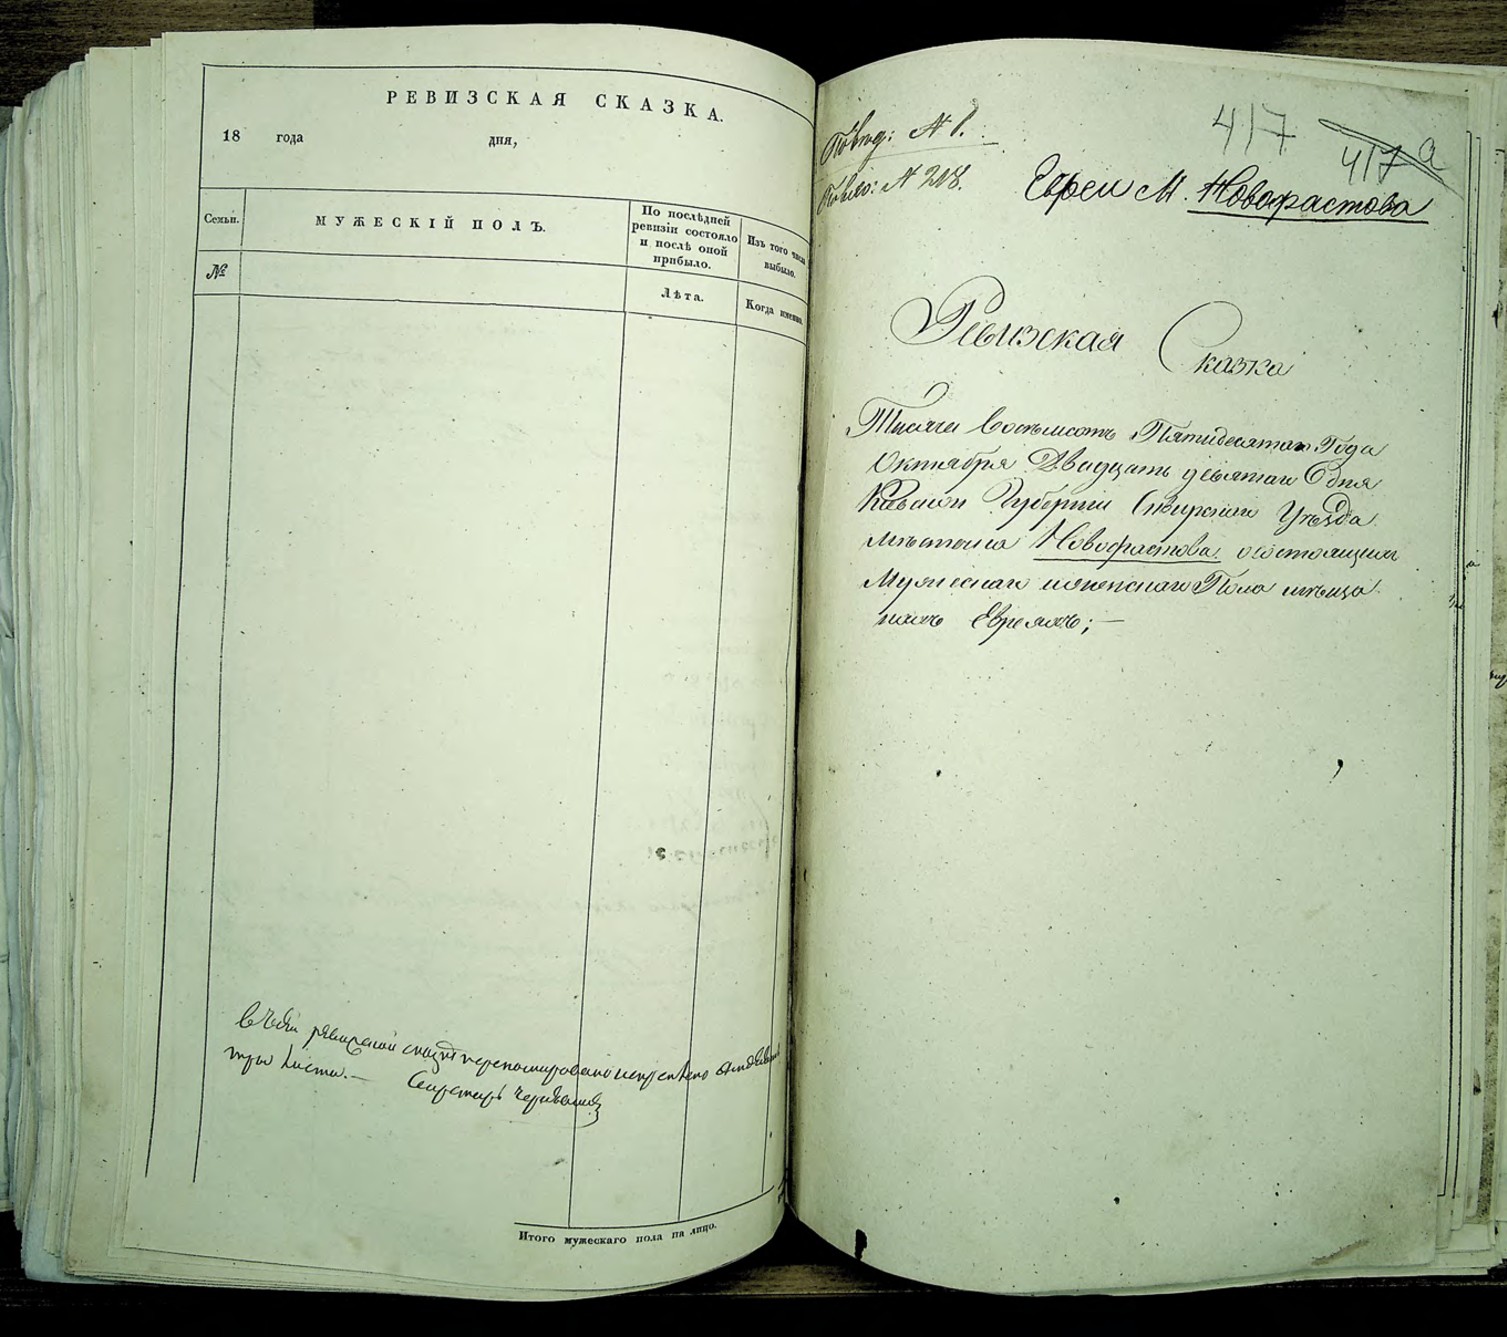 РЕВИЗСКАЯ СКАЗКА.
18 года дня,
Семьи.
МУЖЕСКІЙ ПОЛЪ.
По послѣдней
ревизіи состояло
и послѣ оной
прибыло.
Изъ того числа
выбыло.
№
Лѣта.
Когда именно.
ревизской
три листа.— Секретарь
Итого мужескаго пола на лицо.
№ 1.
№ 218.
417
417 а
Евреи М. Новофастова
Ревизская Сказка
Тысяча восемьсотъ Пятидесятаго Года
Октября Двадцать девятаго дня
Кіевской Губерніи Сквирскаго Уѣзда
мѣстечка Новофастова о состоящихъ
Мужескаго и женскаго Пола мѣща
нахъ Евреяхъ;—